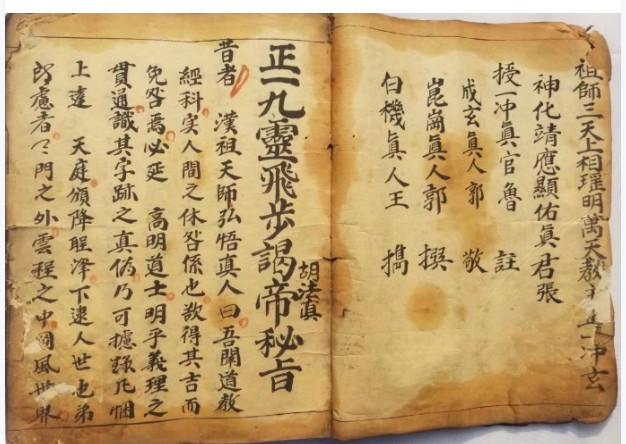 祖師三天上相璀明萬天教主正一冲玄
神化靖應顯佑眞君張
授一冲眞官魯 註
成玄眞人郭 敬
崑崗眞人郭 撰
白機眞人王
胡法眞
正一九靈飛步謁帝秘旨
昔者 漢祖天師弘悟真人曰吾聞道教
經科实人間之休咎係也欲得其吉而
免咎焉必延 高明道士明乎義理之
貫通識其字跡之真偽乃可據錄凡悃
上達 天庭頒降 澤下逮人世也弟
慮者 門之外雲程之中罡風世界